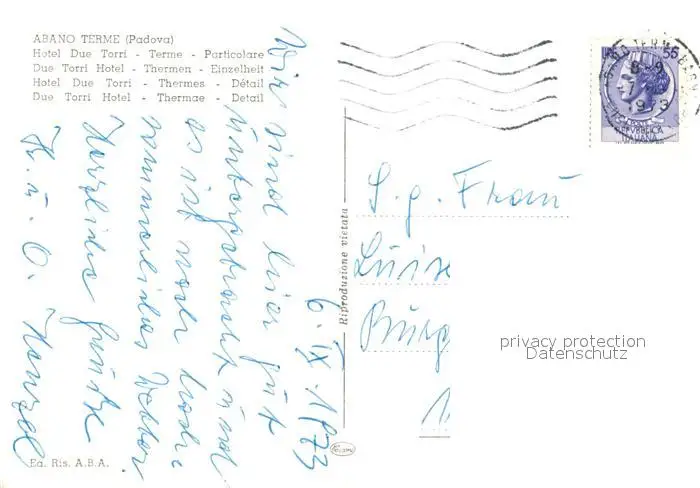 ABANO TERME (Padova)
Hotel Due Torri - Terme - Particolare
Due Torri Hotel - Thermen - Einzelheit
Hotel Due Torri - Thermes - Détail
Due Torri Hotel - Thermae - Detail
Wir sind hier gut
untergebracht und
es ist noch
sommerliches Wetter
Herzliche Grüße
H. u. O.
6. IX. 1973
Ed. Ris. A.B.A.
Riproduzione vietata
55
1973
POSTE
REPVBBLICA
ITALIANA
S. g. Frau
Luise
privacy protection
Datenschutz